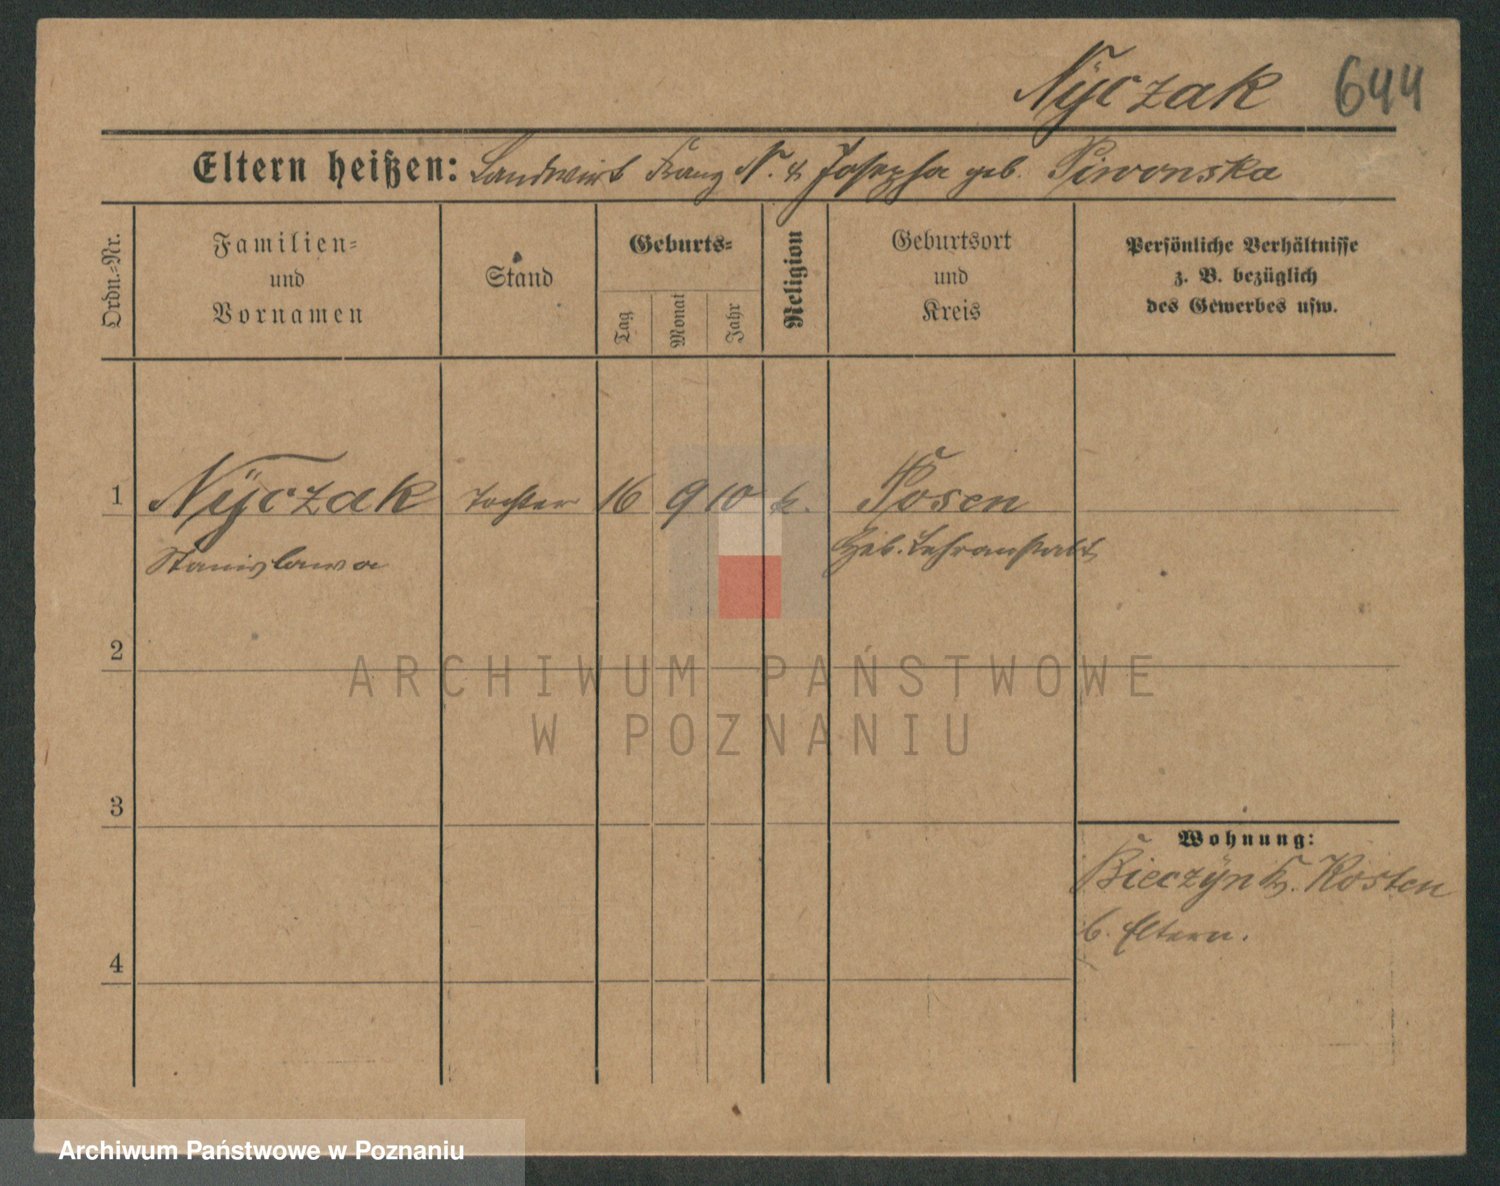 Nÿczak 644
Eltern heißen: Landwirt Franz N. & Josepha geb. Piwonska
Ordn.-Nr.
Familien-
und
Vornamen
Stand
Geburts-
Tag
Monat
Jahr
Religion
Geburtsort
und
Kreis
Persönliche Verhältnisse
z. B. bezüglich
des Gewerbes usw.
1 Nÿczak Tochter 16 9 10 k. Posen
Stanislawa Heb. Lehranstalt
2
ARCHIWUM PAŃSTWOWE
W POZNANIU
3
Wohnung:
Bieczÿn Ks. Kosten
b. Eltern.
4
Archiwum Państwowe w Poznaniu